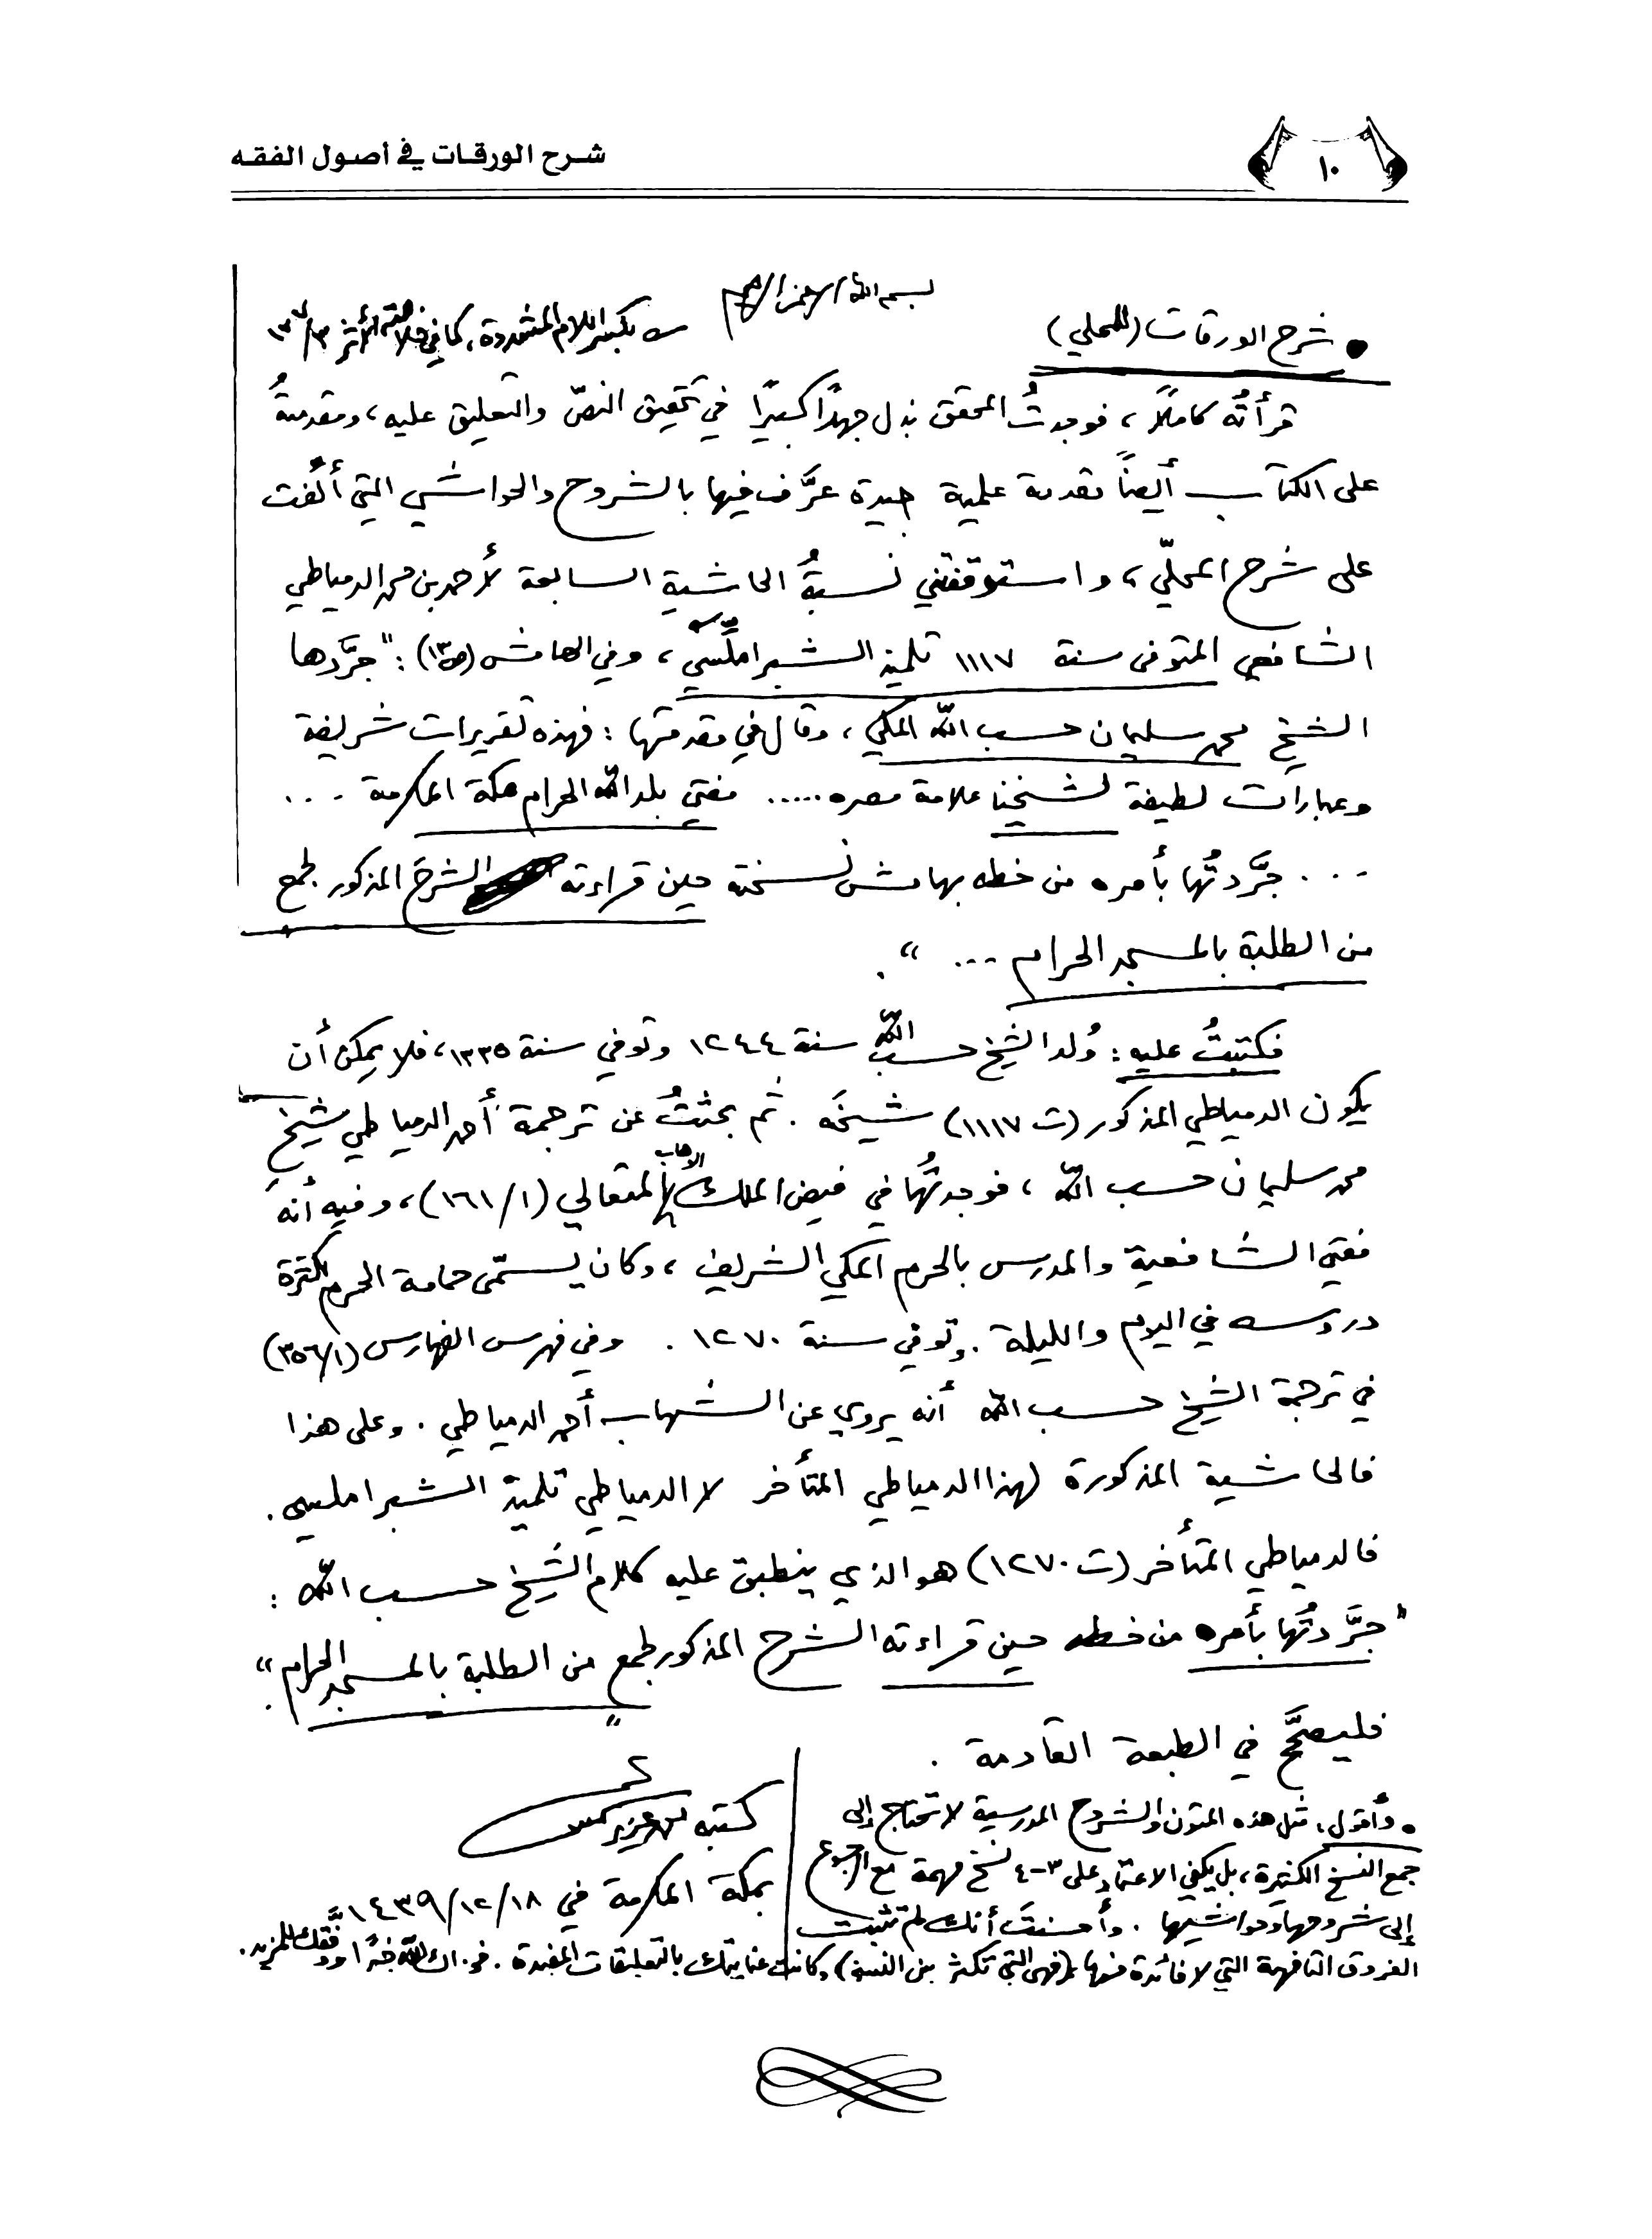 ١٠
شرح الورقات في أصول الفقه
بسم الله الرحمن الرحيم
• شرح الورقات (للمحلي)
بكسر اللام المشددة، كما في خلاصة الأثر ٣/
قرأتُه كاملًا، فوجدتُ المحقق بذل جهدًا كبيرًا في تحقيق النصّ والتعليق عليه، ومقدمتهُ
على الكتاب أيضًا مقدمة علمية جيدة عرَّف فيها بالشروح والحواشي التي أُلِّفت
على شرح المحلّي، واستوقفتني نسبةُ الحاشية السابعة لأحمد بن محمد الدمياطي
الشافعي المتوفى سنة ١١١٧ تلميذ الشبراملِّسي، وفي الهامش (ص١٣): "جرَّدها
الشيخ محمد سليمان حسب الله المكي، وقال في مقدمتها: فهذه تقريرات شريفة
وعبارات لطيفة لشيخنا علامة عصره ..... مفتي بلد الله الحرام مكة المكرمة ...
... جرَّدتُها بأمره من خطه بهامش نسخته حين قراءته الشرحَ المذكور لجمع
من الطلبة بالمسجد الحرام ... ".
فكتبتُ عليه: وُلد الشيخ حسب الله سنة ١٢٤٤ وتوفي سنة ١٣٣٥، فلا يمكن أن
يكون الدمياطي المذكور (ت ١١١٧) شيخَه. ثم بحثتُ عن ترجمة أحمد الدمياطي شيخِ
محمد سليمان حسب الله، فوجدتُها في فيض الملك الوهاب المتعالي (١/١٦١)، وفيه أنه
مفتي الشافعية والمدرس بالحرم المكي الشريف، وكان يسمّى حمامة الحرم لكثرة
دروسه في اليوم والليلة. وتوفي سنة ١٢٧٠. وفي فهرس الفهارس (١/٣٥٦)
في ترجمة الشيخ حسب الله أنه يروي عن الشهاب أحمد الدمياطي. وعلى هذا
فالحاشية المذكورة لهذا الدمياطي المتأخر لا الدمياطي تلميذ الشبراملسي.
فالدمياطي المتأخر (ت ١٢٧٠) هو الذي ينطبق عليه كلام الشيخ حسب الله:
"جرَّدتُها بأمره من خطه حين قراءته الشرح المذكور لجمع من الطلبة بالمسجد الحرام".
فليصحَّح في الطبعة القادمة.
• وأقول: مثل هذه المتون والشروح المدرسية لا تحتاج إلى
جمع النسخ الكثيرة، بل يكفي الاعتماد على ٣-٤ نسخ مهمة مع الرجوع
إلى شروحها وحواشيها. وأحسنتَ أنك لم تثبت
الفروق التافهة التي لا فائدة منها (فهي التي تكثر بين النسخ) وكانت عنايتك بالتعليقات المفيدة. فجزاك الله خيرًا ووفَّقك للمزيد.
كتبه محمد عزير شمس
بمكة المكرمة في ١٨/١٢/١٤٣٩